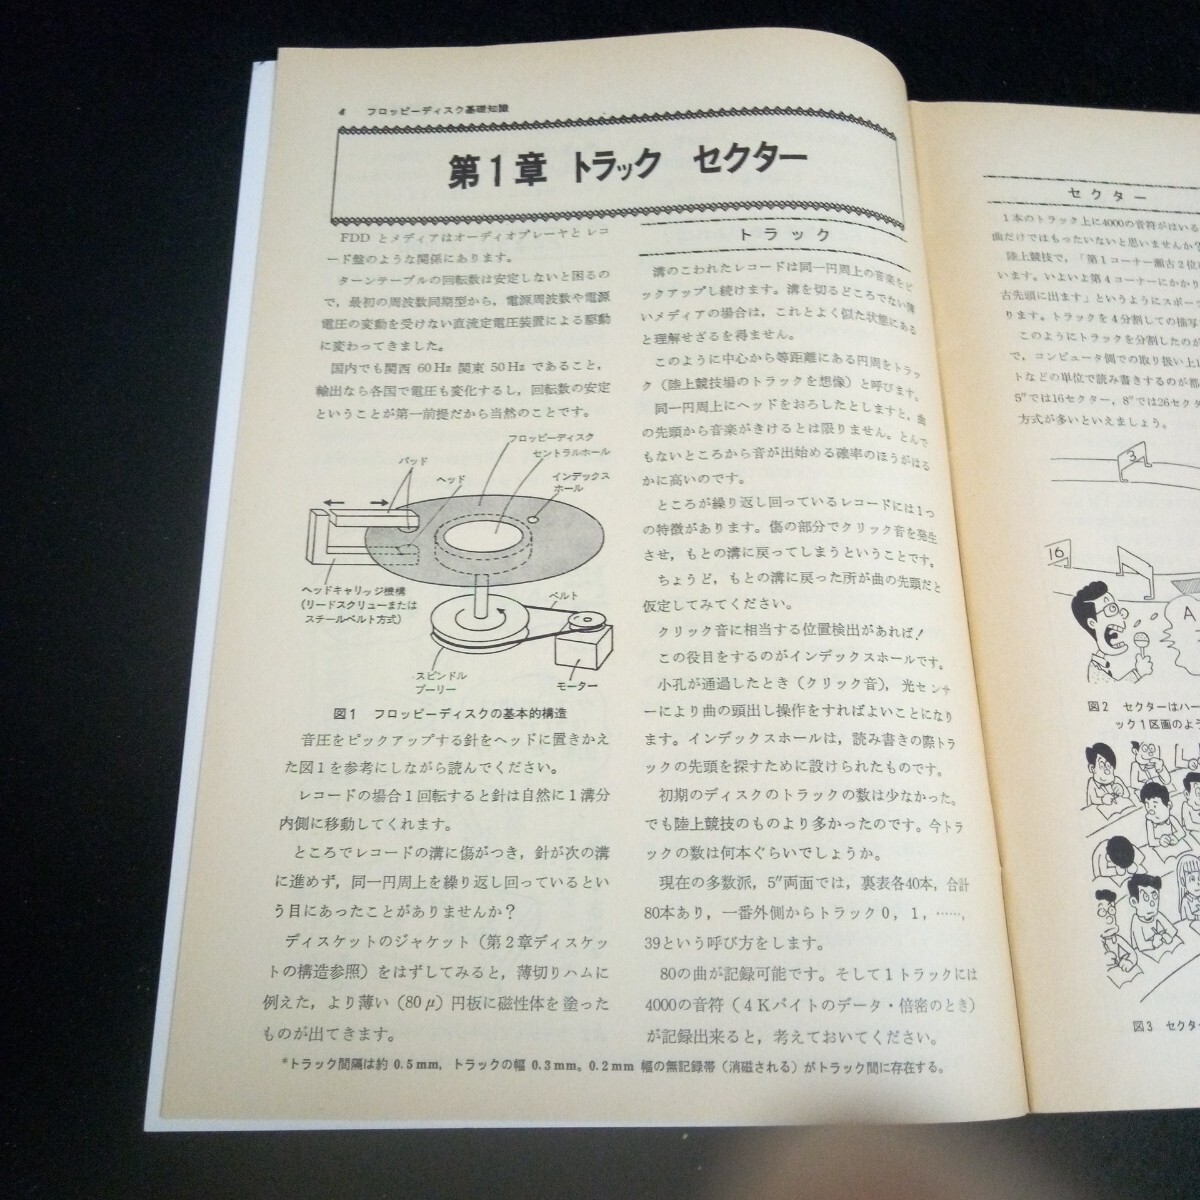 4 フロッピーディスク基礎知識
第1章 トラック セクター
FDD とメディアはオーディオプレーヤとレコ
ード盤のような関係にあります。
ターンテーブルの回転数は安定しないと困るの
で，最初の周波数同期型から，電源周波数や電源
電圧の変動を受けない直流定電圧装置による駆動
に変わってきました。
国内でも関西 60Hz 関東 50Hz であること，
輸出なら各国で電圧も変化するし，回転数の安定
ということが第一前提だから当然のことです。
フロッピーディスク
セントラルホール
パッド
ヘッド
インデックス
ホール
ヘッドキャリッジ機構
(リードスクリューまたは
スチールベルト方式)
ベルト
スピンドル
プーリー
モーター
図1 フロッピーディスクの基本的構造
音圧をピックアップする針をヘッドに置きかえ
た図1を参考にしながら読んでください。
レコードの場合1回転すると針は自然に1溝分
内側に移動してくれます。
ところでレコードの溝に傷がつき，針が次の溝
に進めず，同一円周上を繰り返し回っているとい
う目にあったことがありませんか？
ディスケットのジャケット（第2章ディスケッ
トの構造参照）をはずしてみると，薄切りハムに
例えた，より薄い（80μ）円板に磁性体を塗った
ものが出てきます。
トラック
溝のこわれたレコードは同一円周上の音楽をピ
ックアップし続けます。溝を切るどころでない薄
いメディアの場合は，これとよく似た状態にある
と理解せざるを得ません。
このように中心から等距離にある円周をトラッ
ク（陸上競技場のトラックを想像）と呼びます。
同一円周上にヘッドをおろしたとしますと，曲
の先頭から音楽がきけるとは限りません。とんで
もないところから音が出始める確率のほうがはる
かに高いのです。
ところが繰り返し回っているレコードには1つ
の特徴があります。傷の部分でクリック音を発生
させ，もとの溝に戻ってしまうということです。
ちょうど，もとの溝に戻った所が曲の先頭だと
仮定してみてください。
クリック音に相当する位置検出があれば！
この役目をするのがインデックスホールです。
小孔が通過したとき（クリック音），光センサ
ーにより曲の頭出し操作をすればよいことになり
ます。インデックスホールは，読み書きの際トラ
ックの先頭を探すために設けられたものです。
初期のディスクのトラックの数は少なかった。
でも陸上競技のものより多かったのです。今トラ
ックの数は何本ぐらいでしょうか。
現在の多数派，5″両面では，裏表各40本，合計
80本あり，一番外側からトラック0，1，……，
39という呼び方をします。
80の曲が記録可能です。そして1トラックには
4000の音符（4Kバイトのデータ・倍密のとき）
が記録出来ると，考えておいてください。
*トラック間隔は約 0.5mm，トラックの幅 0.3mm。0.2mm 幅の無記録帯（消磁される）がトラック間に存在する。
セクター
1本のトラック上に4000の音符がはいる
曲だけではもったいないと思いませんか？
陸上競技で，「第1コーナー瀬古2位
います。いよいよ第4コーナーにかかり
古先頭に出ます」というようにスポー
ります。トラックを4分割しての描写
このようにトラックを分割したのが
で，コンピュータ側での取り扱い上
トなどの単位で読み書きするのが都
5″では16セクター，8″では26セクタ
方式が多いといえましょう。
3
16
A
図2 セクターはハー
ック1区画のよう
図3 セクタ